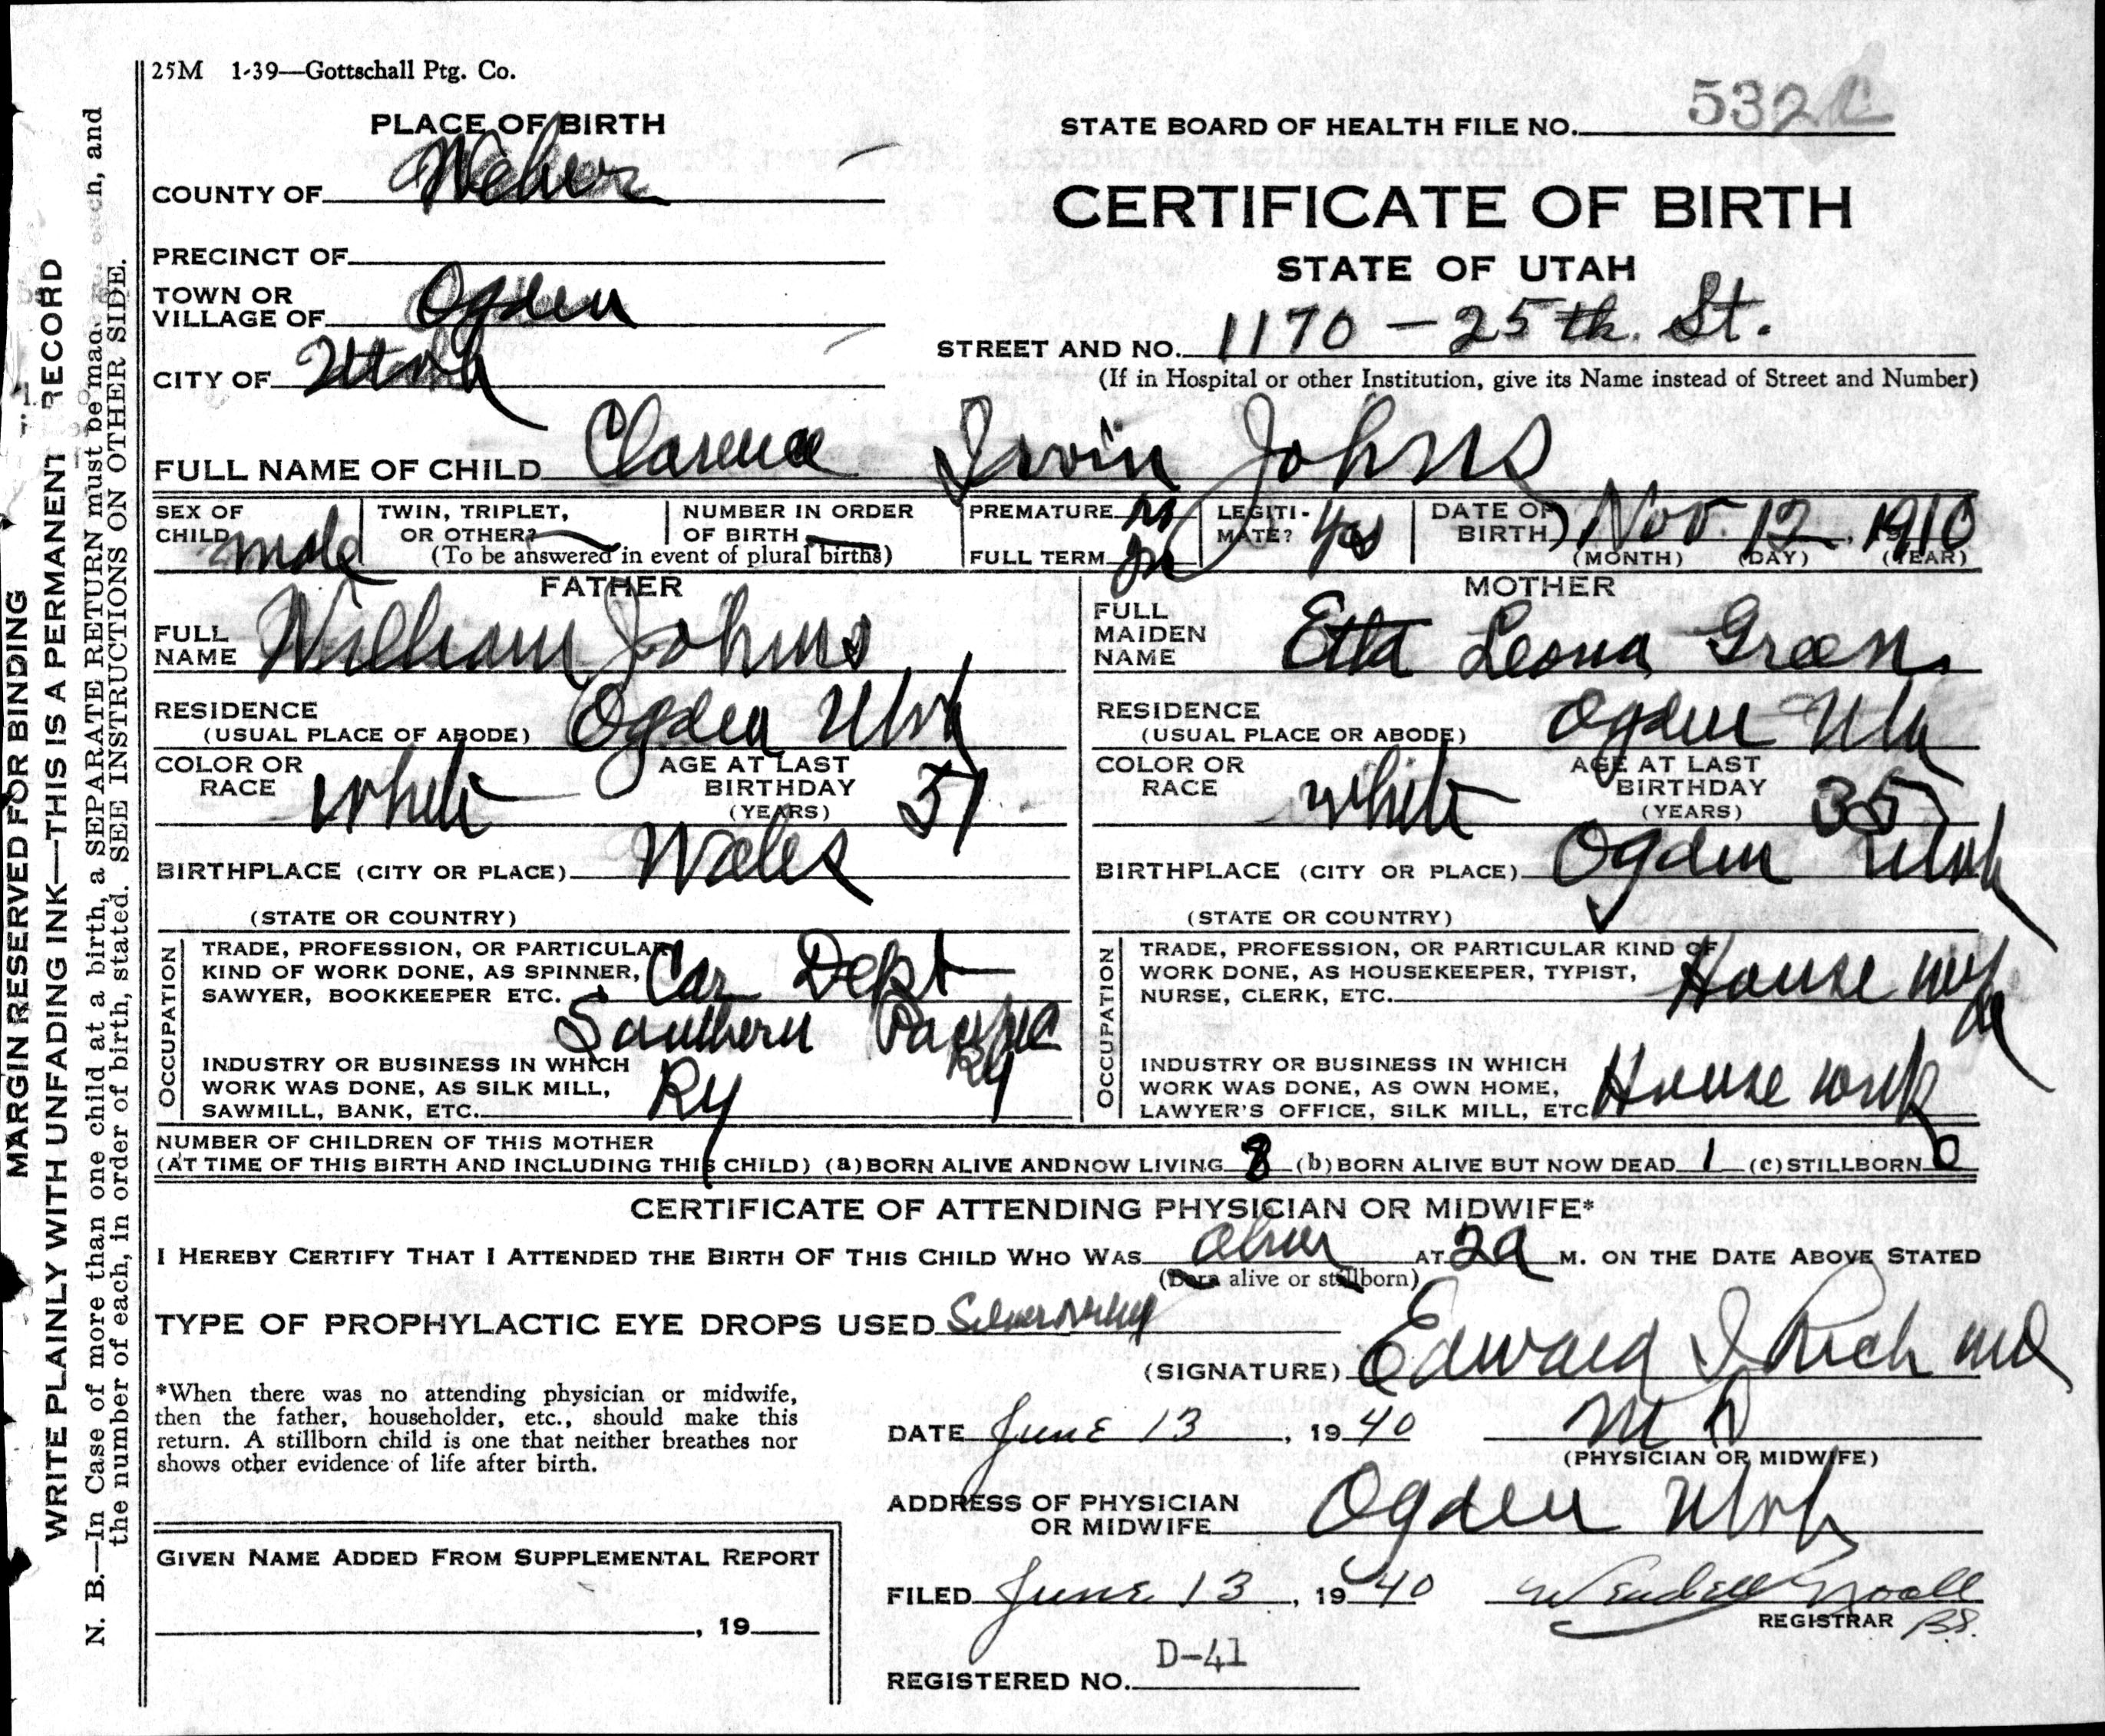 25M 1-39—Gottschall Ptg. Co.
PLACE OF BIRTH
COUNTY OF Weber
PRECINCT OF
TOWN OR VILLAGE OF Ogden
CITY OF Utah
STATE BOARD OF HEALTH FILE NO. 532
CERTIFICATE OF BIRTH
STATE OF UTAH
STREET AND NO. 1170 – 25th. St.
(If in Hospital or other Institution, give its Name instead of Street and Number)
FULL NAME OF CHILD Clarence Irvin Johns
SEX OF CHILD male
TWIN, TRIPLET, OR OTHER?
NUMBER IN ORDER OF BIRTH
(To be answered in event of plural births)
PREMATURE
FULL TERM
LEGITIMATE? yes
DATE OF BIRTH Nov. 12, 1910
(MONTH) (DAY) (YEAR)
FATHER
FULL NAME William Johns
RESIDENCE Ogden Utah
(USUAL PLACE OF ABODE)
COLOR OR RACE white
AGE AT LAST BIRTHDAY (YEARS) 37
BIRTHPLACE (CITY OR PLACE) Wales
(STATE OR COUNTRY)
OCCUPATION
TRADE, PROFESSION, OR PARTICULAR
KIND OF WORK DONE, AS SPINNER,
SAWYER, BOOKKEEPER ETC. Car Dept
Southern Pacific Ry
INDUSTRY OR BUSINESS IN WHICH
WORK WAS DONE, AS SILK MILL,
SAWMILL, BANK, ETC. Ry
MOTHER
FULL MAIDEN NAME Etta Leona Green
RESIDENCE Ogden Utah
(USUAL PLACE OR ABODE)
COLOR OR RACE white
AGE AT LAST BIRTHDAY (YEARS) 35
BIRTHPLACE (CITY OR PLACE) Ogden Utah
(STATE OR COUNTRY)
OCCUPATION
TRADE, PROFESSION, OR PARTICULAR KIND OF
WORK DONE, AS HOUSEKEEPER, TYPIST,
NURSE, CLERK, ETC. House wife
INDUSTRY OR BUSINESS IN WHICH
WORK WAS DONE, AS OWN HOME,
LAWYER'S OFFICE, SILK MILL, ETC House work
NUMBER OF CHILDREN OF THIS MOTHER
(AT TIME OF THIS BIRTH AND INCLUDING THIS CHILD) (a) BORN ALIVE AND NOW LIVING 8 (b) BORN ALIVE BUT NOW DEAD 1 (c) STILLBORN 0
CERTIFICATE OF ATTENDING PHYSICIAN OR MIDWIFE*
I HEREBY CERTIFY THAT I ATTENDED THE BIRTH OF THIS CHILD WHO WAS alive AT 2 a M. ON THE DATE ABOVE STATED
(Born alive or stillborn)
TYPE OF PROPHYLACTIC EYE DROPS USED Silver
(SIGNATURE) Edward I Rich MD
*When there was no attending physician or midwife,
then the father, householder, etc., should make this
return. A stillborn child is one that neither breathes nor
shows other evidence of life after birth.
DATE June 13, 1940
M D
(PHYSICIAN OR MIDWIFE)
ADDRESS OF PHYSICIAN OR MIDWIFE Ogden Utah
GIVEN NAME ADDED FROM SUPPLEMENTAL REPORT
, 19
FILED June 13, 1940 Wendell Noall
REGISTRAR BS.
REGISTERED NO. D-41
MARGIN RESERVED FOR BINDING
WRITE PLAINLY WITH UNFADING INK—THIS IS A PERMANENT RECORD
N. B.—In Case of more than one child at a birth, a SEPARATE RETURN must be made each, and
the number of each, in order of birth, stated. SEE INSTRUCTIONS ON OTHER SIDE.